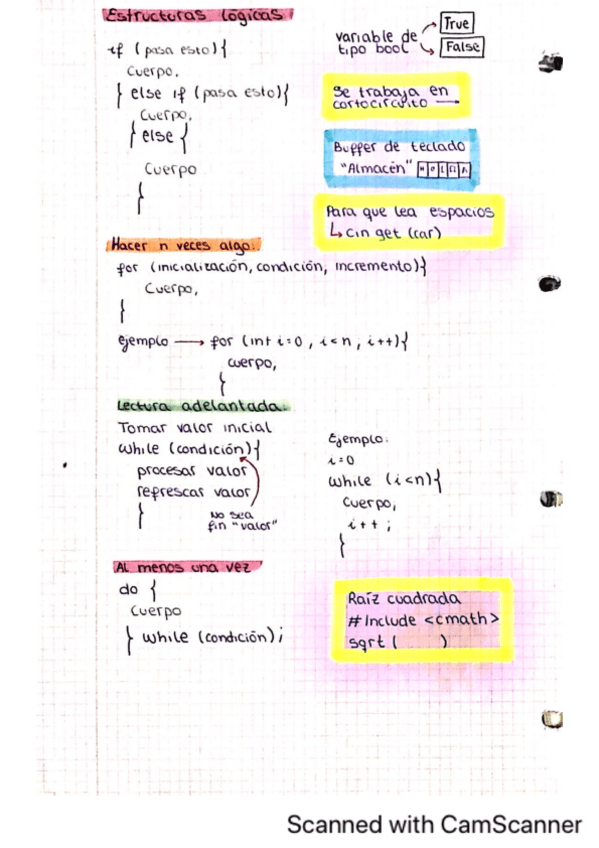 Estructuras lógicas
if (pasa esto){
Cuerpo,
} else if (pasa esto){
Cuerpo,
} else {
Cuerpo
}
variable de tipo bool
True
False
Se trabaja en
cortocircuito →
Buffer de teclado
"Almacén" HOLA
Para que lea espacios
↳ cin get (car)
Hacer n veces algo.
for (inicialización, condición, incremento){
Cuerpo,
}
ejemplo → for (int i=0, i<n, i++){
cuerpo,
}
Lectura adelantada.
Tomar valor inicial
while (condición){
procesar valor
refrescar valor
}
No sea
fin "valor"
Ejemplo:
i=0
while (i<n){
Cuerpo,
i++;
}
Al menos una vez
do {
Cuerpo
} while (condición);
Raíz cuadrada
#Include <cmath>
sqrt ( )
Scanned with CamScanner